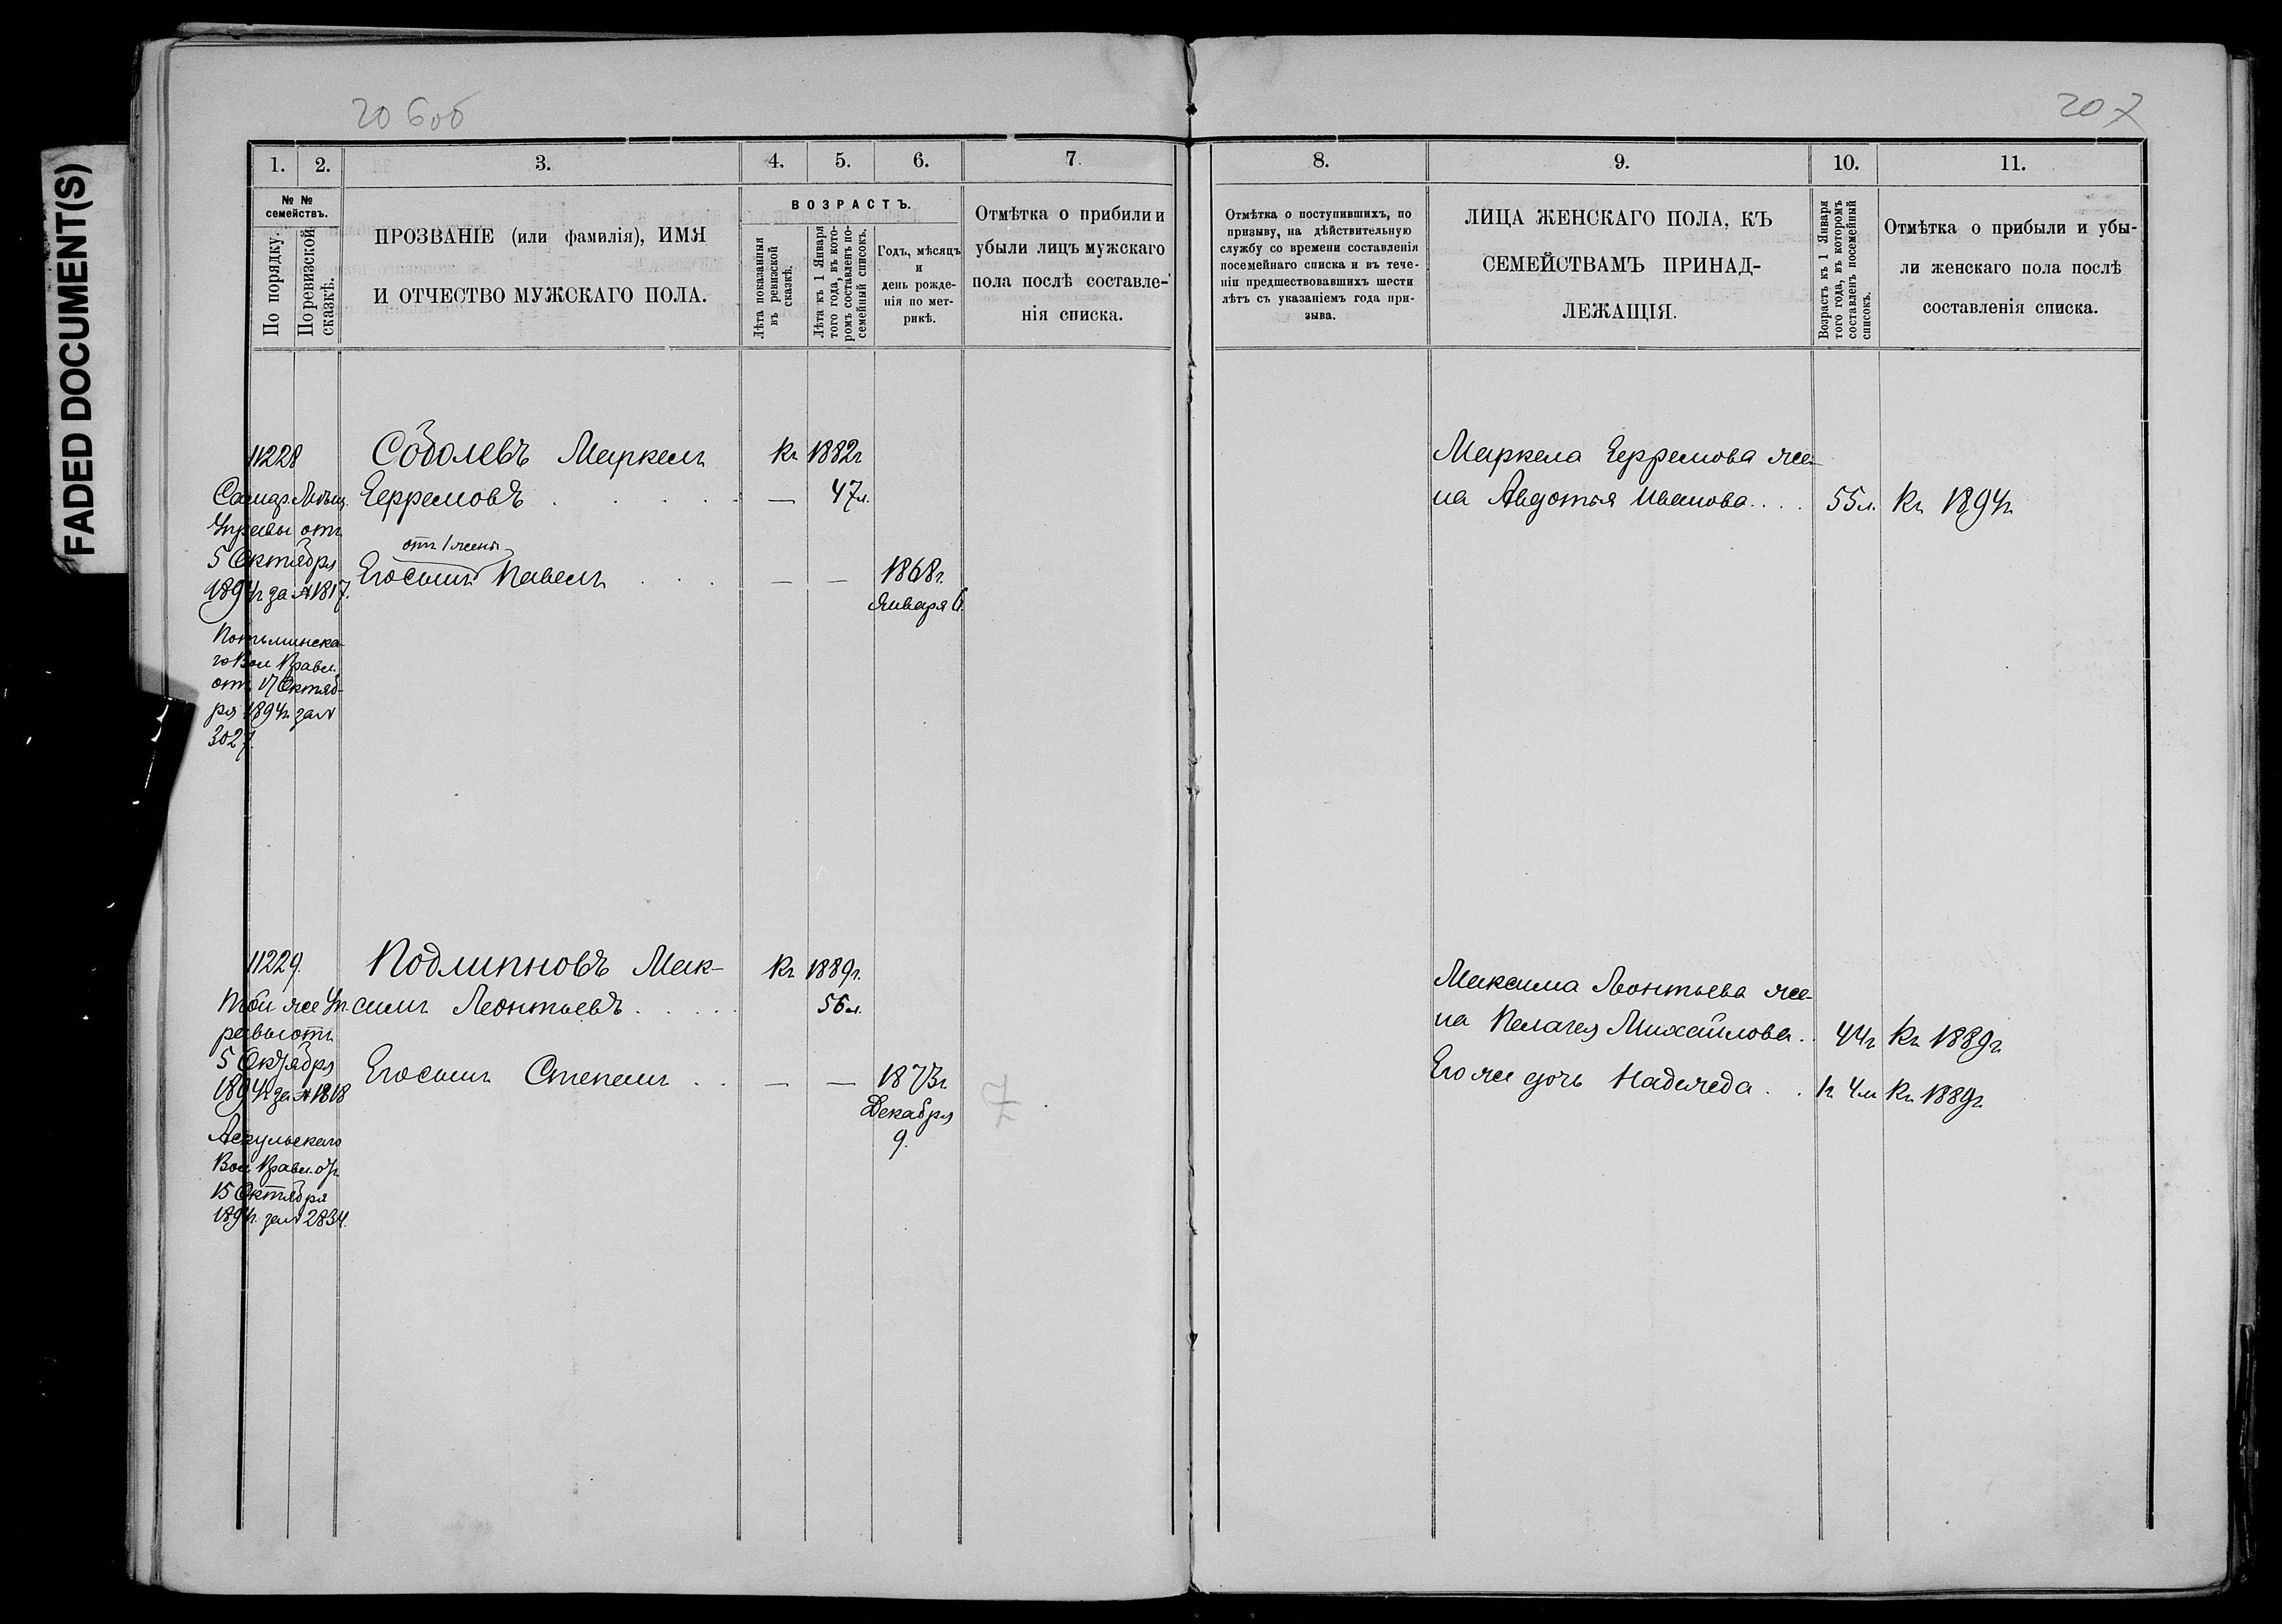 FADED DOCUMENT(S)
206об
207
1. 2. 3. 4. 5. 6. 7.
№ № семействъ.
По порядку.
По ревизской сказкѣ.
ПРОЗВАНІЕ (или фамилія), ИМЯ
И ОТЧЕСТВО МУЖСКАГО ПОЛА.
ВОЗРАСТЪ.
Лѣта показанныя
въ ревизской
сказкѣ.
Лѣта къ 1 Января
того года, въ кото-
ромъ составленъ по-
семейный списокъ.
Годъ, мѣсяцъ
и
день рожде-
нія по мет-
рикѣ.
Отмѣтка о прибыли и
убыли лицъ мужскаго
пола послѣ составле-
нія списка.
11228
Самар. Мѣщ.
Управы отъ
5 Октября
1894г. за № 1817.
Потьминска-
го Вол. Правл.
отъ 17 Октяб-
ря 1894г. за №
3027.
Соболевъ Маркелъ Къ 1882г
Ефремовъ . . . . — 47л.
отъ 1 жены
Его сынъ Павелъ . . . — — 1868г.
Января 6.
11229.
Той же Уп-
равы отъ
5 Октября
1894г. за № 1818
Аскульскаго
Вол. Правл. отъ
15 Октября
1894г. за № 2834.
Подлипновъ Мак- Къ 1889г.
симъ Леонтьевъ . . . . . 56л.
Его сынъ Степанъ . . — — 1873г
Декабря
9.
8. 9. 10. 11.
Отмѣтка о поступившихъ, по
призыву, на дѣйствительную
службу со времени составленія
посемейнаго списка и въ тече-
ніи предшествовавшихъ шести
лѣтъ съ указаніемъ года при-
зыва.
ЛИЦА ЖЕНСКАГО ПОЛА, КЪ
СЕМЕЙСТВАМЪ ПРИНАД-
ЛЕЖАЩІЯ.
Возрастъ къ 1 Января
того года, въ которомъ
составленъ посемейный
списокъ.
Отмѣтка о прибыли и убы-
ли женскаго пола послѣ
составленія списка.
Маркела Ефремова же-
на Авдотья Иванова . . . . 55л. Къ 1894г.
Максима Леонтьева же-
на Пелагея Михайлова . . 44г Къ 1889г
Его же дочь Надежда . . 1г 4м Къ 1889г.